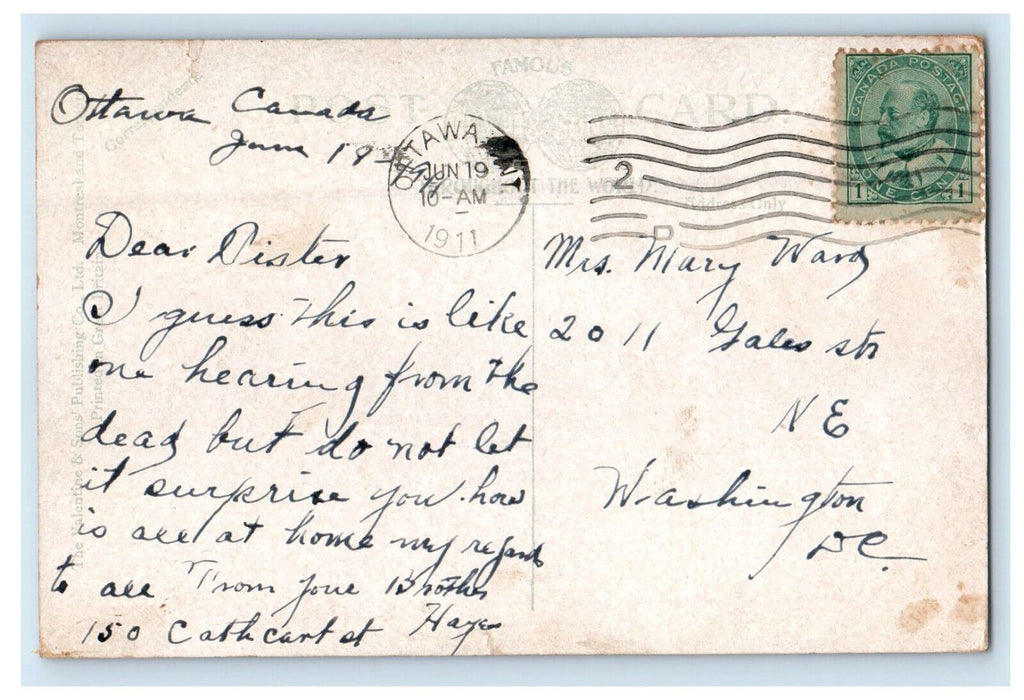 FAMOUS
POST CARD
THROUGHOUT THE WORLD.
Address Only
The Valentine & Sons' Publishing Co., Ltd. Montreal and
Printed in Great Britain
CANADA POSTAGE
1 ONE CENT 1
OTTAWA, ONT
JUN 19
10-AM
1911
2
Ottawa Canada
June 19-1911
Dear Sister
I guess this is like
one hearing from the
dead but do not let
it surprise you. how
is all at home my regards
to all From your Brother
Hayes
150 Cathcart st
Mrs. Mary Ward
2011 Gales str
N E
Washington
DC.